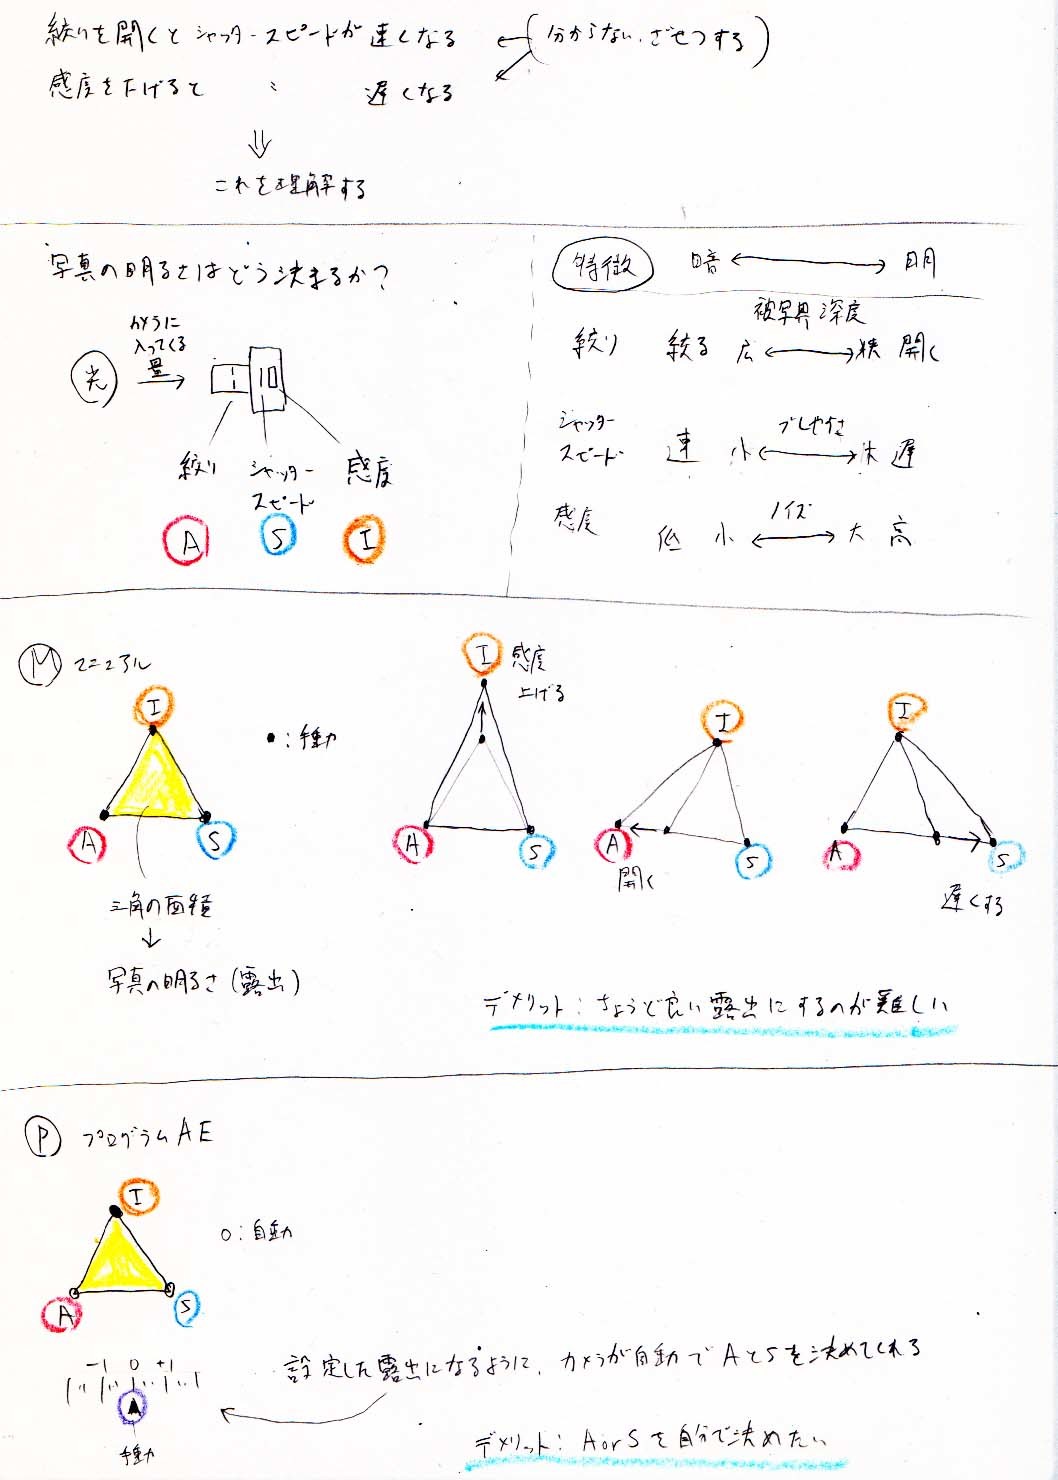 絞りを開くとシャッタースピードが速くなる
(分からない、ざせつする)
感度を下げると 〃 遅くなる
これを理解する
写真の明るさはどう決まるか?
カメラに
入ってくる
量
光
絞り
シャッター
スピード
感度
A
S
I
特徴 暗 明
被写界深度
絞り 絞る 広 狭 開く
シャッター
スピード
ブレやすさ
速 小 大 遅
感度
ノイズ
低 小 大 高
M マニュアル
I
A
S
●:手動
三角の面積
写真の明るさ(露出)
I 感度
上げる
A
S
I
A
S
開く
I
A
S
遅くする
デメリット:ちょうど良い露出にするのが難しい
P プログラムAE
I
A
S
○:自動
-1 0 +1
手動
設定した露出になるように、カメラが自動でAとSを決めてくれる
デメリット:AorSを自分で決めたい